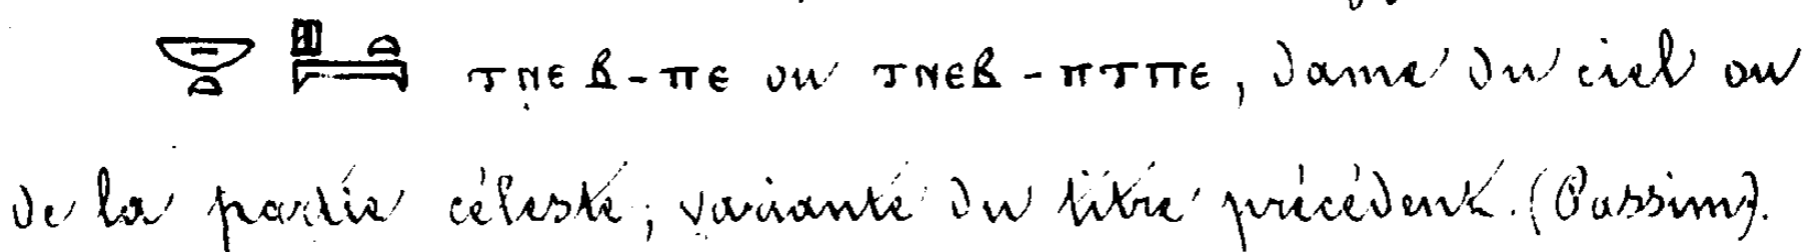 𓎟𓏏 𓊪𓏏𓇯 ⲧⲛⲉⲃ-ⲡⲉ ou ⲧⲛⲉⲃ-ⲡⲧⲡⲉ, dame du ciel ou
de la partie céleste; variante du titre précédent. (Passim).